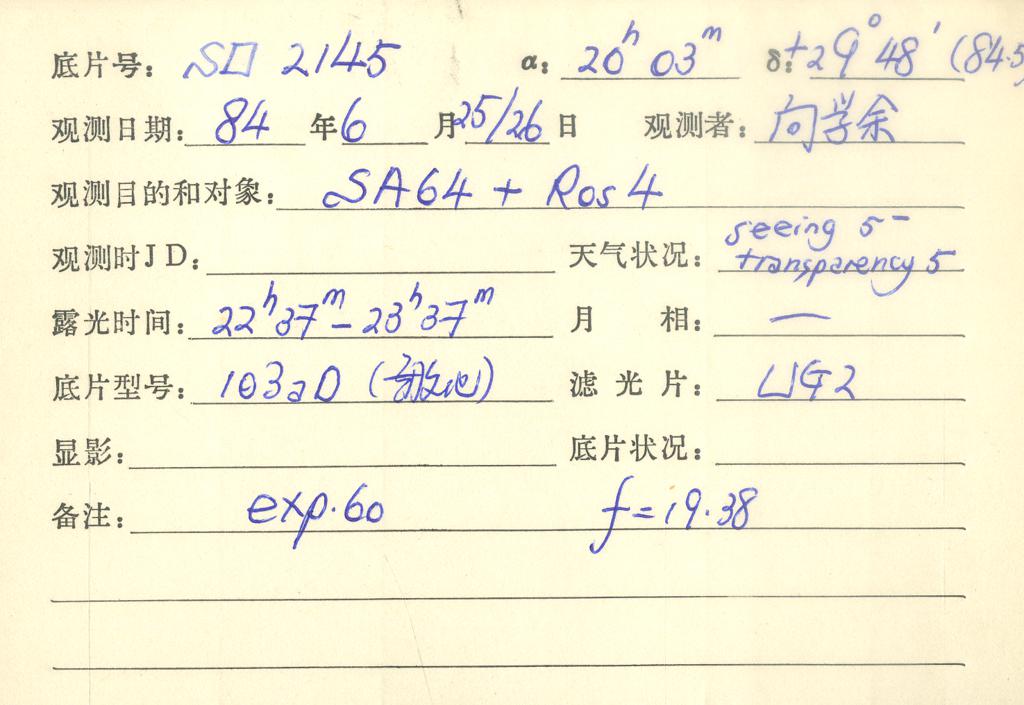 底片号: SD 2145 α: 20h 03m δ: +29° 48′ (84.5
观测日期: 84 年 6 月 25/26 日 观测者: 向学余
观测目的和对象: SA64 + Ros 4
观测时JD: 天气状况: seeing 5- transparency 5
露光时间: 22h37m - 23h37m 月 相: —
底片型号: 103aD ( ) 滤光片: UG2
显影: 底片状况:
备注: exp.60 f=19.38